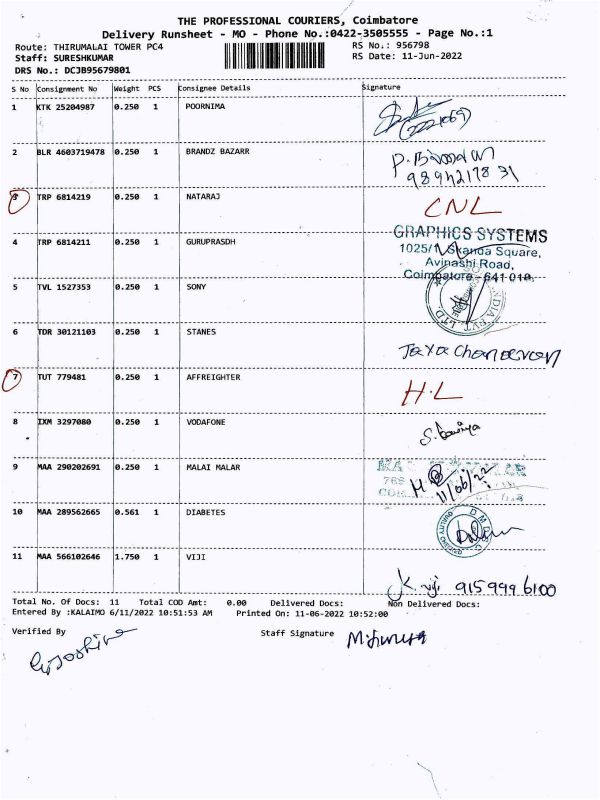 THE PROFESSIONAL COURIERS, Coimbatore
Delivery Runsheet - MO - Phone No.:0422-3505555 - Page No.:1
Route: THIRUMALAI TOWER PC4 RS No.: 956798
Staff: SURESHKUMAR RS Date: 11-Jun-2022
DRS No.: DCJB95679801
S No Consignment No Weight PCS Consignee Details Signature
1 KTK 25204987 0.250 1 POORNIMA
2 BLR 4603719478 0.250 1 BRANDZ BAZARR
3 TRP 6814219 0.250 1 NATARAJ CNL
GRAPHICS SYSTEMS
4 TRP 6814211 0.250 1 GURUPRASDH 1025/1 Skanda Square,
Avinashi Road,
Coimbatore - 641 018.
5 TVL 1527353 0.250 1 SONY
6 TDR 30121103 0.250 1 STANES
7 TUT 779481 0.250 1 AFFREIGHTER H.L
8 IXM 3297080 0.250 1 VODAFONE
9 MAA 290202691 0.250 1 MALAI MALAR 11/06/22
10 MAA 289562665 0.561 1 DIABETES
11 MAA 566102646 1.750 1 VIJI
K. viji 915 999 6100
Total No. Of Docs: 11 Total COD Amt: 0.00 Delivered Docs: Non Delivered Docs:
Entered By :KALAIMO 6/11/2022 10:51:53 AM Printed On: 11-06-2022 10:52:00
Verified By Staff Signature